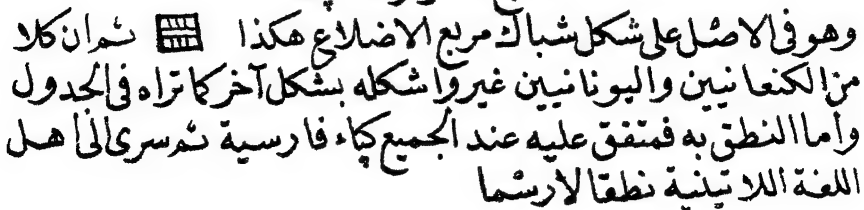 وهو فى الاصل على شكل شباك مربع الاضلاع هكذا ثم ان كلا
من الكنعانيين واليونانيين غيروا شكله بشكل آخر كما تراه فى الجدول
واما النطق به فمتفق عليه عند الجميع كپاء فارسية ثم سرى الى اهل
اللغة اللاتينية نطقا لا رسما